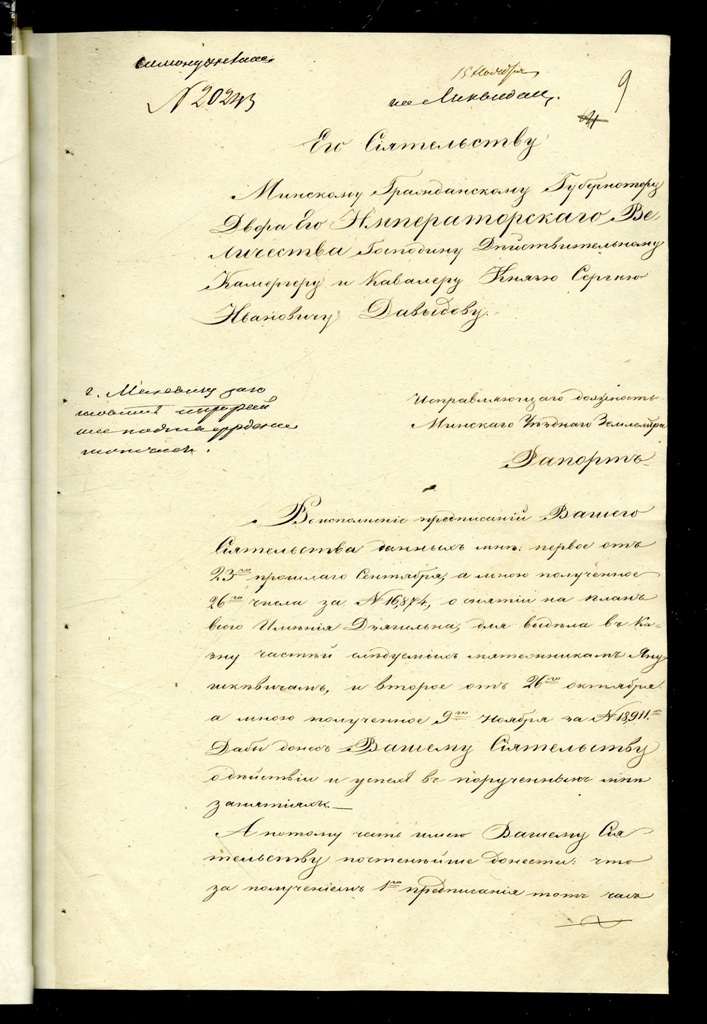 N 20243
15 Ноября
9
Его Сіятельству
Минскому Гражданскому Губернатору
Двора Его Императорскаго Ве-
личества Господину Дѣйствительному
Камергеру и Кавалеру Князю Сергѣю
Ивановичу Давыдову.
Исправляющаго должность
Минскаго Уѣзднаго Землемѣра
Рапортъ
Воисполненіе предписаній Вашего
Сіятельства данныхъ мнѣ: первое отъ
23го прошлаго Сентября, а мною полученное
26го числа за N 16,874, о снятіи на планъ
всего Имѣнія Дзягильна, для выдѣла въ Ка-
зну частей слѣдуемыхъ мятежникамъ Яну-
шкевичамъ, и второе отъ 26го октября
а мною полученное 9го Ноября за N 18,911.
Дабы донесъ Вашему Сіятельству
о дѣйствіи и успехѣ въ порученныхъ мнѣ
занятіяхъ.—
А потому честь имею Вашему Сія-
тельству почтеннѣйше донести: что
за полученіемъ 1го предписанія тотъ часъ